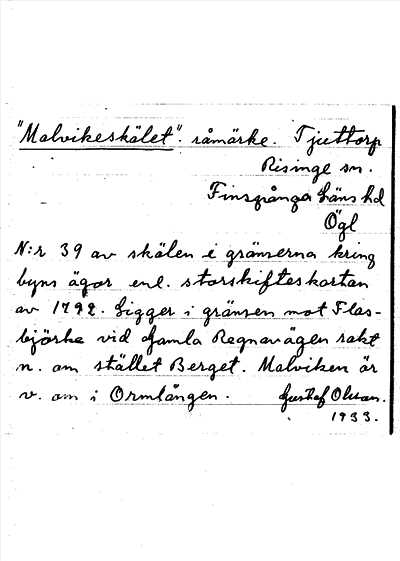 "Malvikeskälet" råmärke. Tjuttorp
Risinge sn.
Finspånga läns hd
Ögl
N:r 39 av skälen i gränserna kring
byns ägor enl. storskifteskartan
av 1792. Ligger i gränsen mot Flas-
björke vid Gamla Regnavägen rakt
n. om stället Berget. Malviken är
v. om i Ormlången. Gustaf Olsson.
1933.